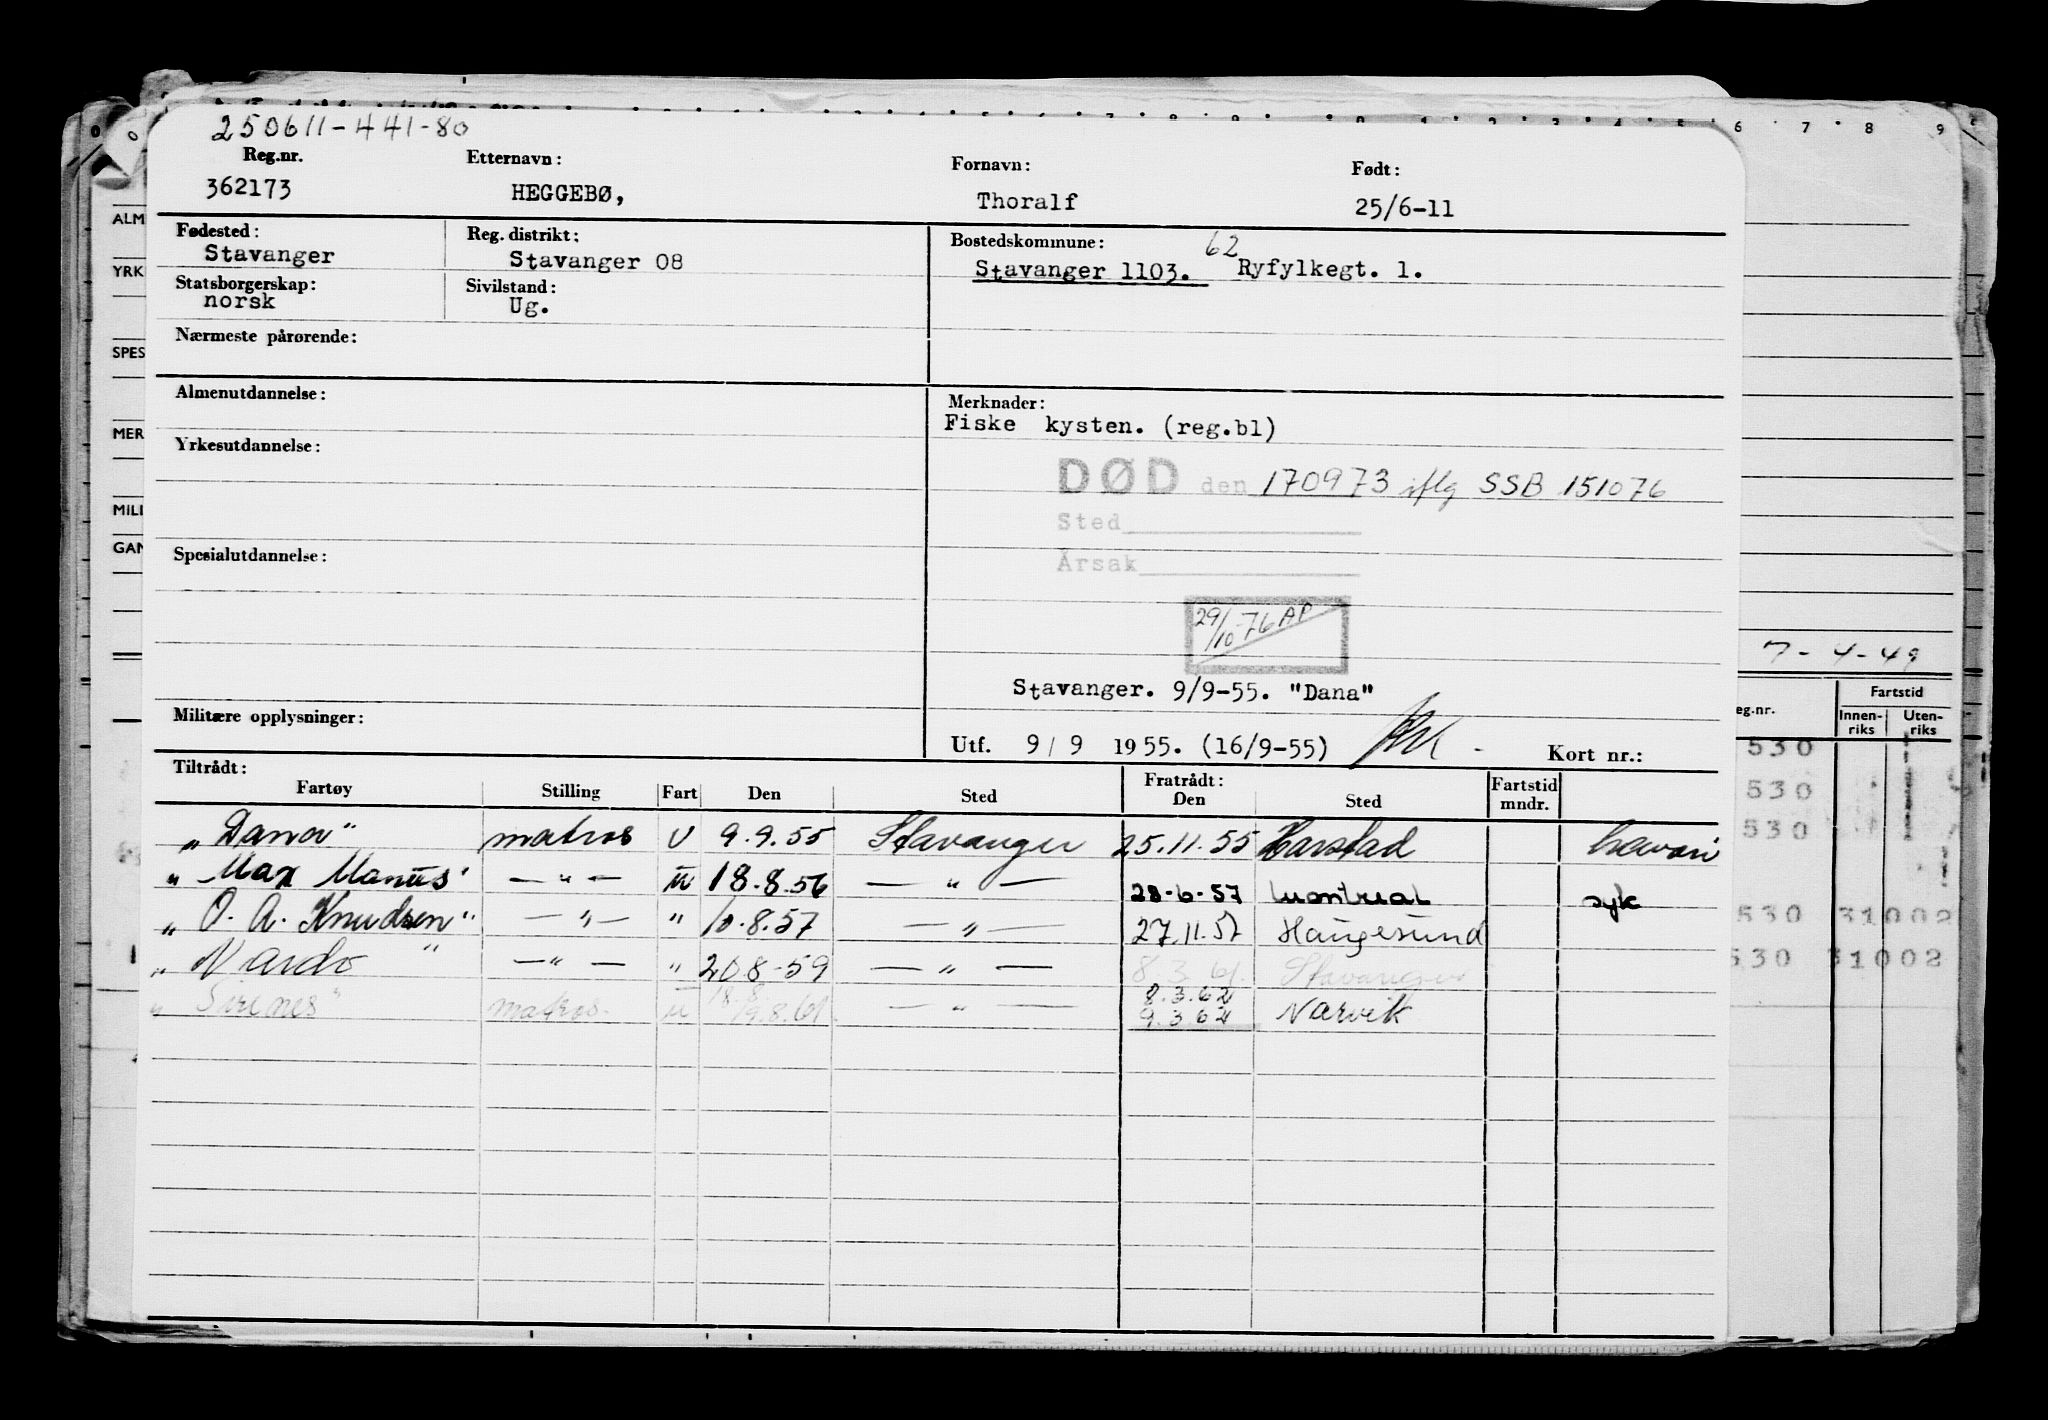 250611-441-80
Reg.nr. Etternavn: Fornavn: Født:
362173 HEGGEBØ, Thoralf 25/6-11
Fødested: Reg. distrikt: Bostedskommune:
Stavanger Stavanger 08 Stavanger 1103. 62 Ryfylkegt. 1.
Statsborgerskap: Sivilstand:
norsk Ug.
Nærmeste pårørende:
Almenutdannelse: Merknader:
Fiske kysten. (reg.bl)
Yrkesutdannelse:
DØD den 170973 iflg SSB 151076
Sted
Årsak
Spesialutdannelse:
29/10-76 AP
Stavanger. 9/9-55. "Dana"
Militære opplysninger:
Utf. 9/9 1955. (16/9-55) Kort nr.:
Tiltrådt: Fratrådt: Fartstid
Fartøy Stilling Fart Den Sted Den Sted mndr.
"Dana" matros U 9.9.55 Stavanger 25.11.55 Harstad havari
"Max Manus" — " — U 18.8.56 — " — 28-6-57 Montreal syk
"O. A. Knudsen" — " — " 10.8.57 — " — 27.11.57 Haugesund
"Vardo" — " — " 20 8-59 — " — 8.3.61. Stavanger
"Sirenes" matros. U 18.8 19.8.61. — " — 8.3.62 9.3 62 Narvik
ALM
YRK
SPES
MER
MILI
GAN
6 7 8 9
7-4-49
eg.nr. Fartstid
Innen-riks Uten-riks
530
530
530
530 31002
530 31002